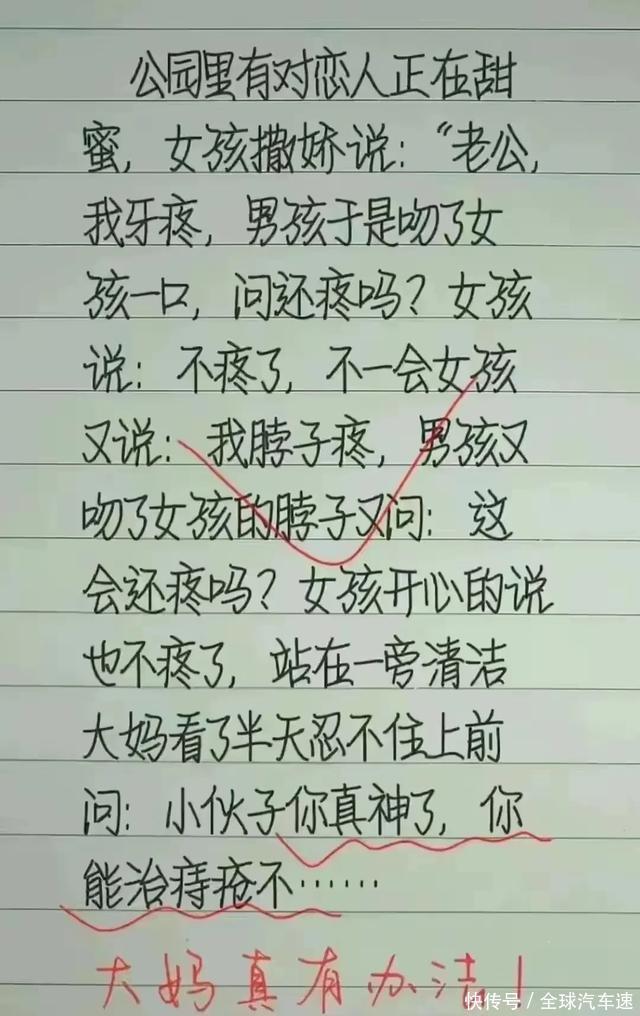 公园里有对恋人正在甜
蜜，女孩撒娇说：“老公，
我牙疼，男孩于是吻了女
孩一口，问还疼吗？女孩
说：不疼了，不一会女孩
又说：我脖子疼，男孩又
吻了女孩的脖子又问：这
会还疼吗？女孩开心的说
也不疼了，站在一旁清洁
大妈看了半天忍不住上前
问：小伙子你真神了，你
能治痔疮不……
大妈真有办法！
快传号／全球汽车速